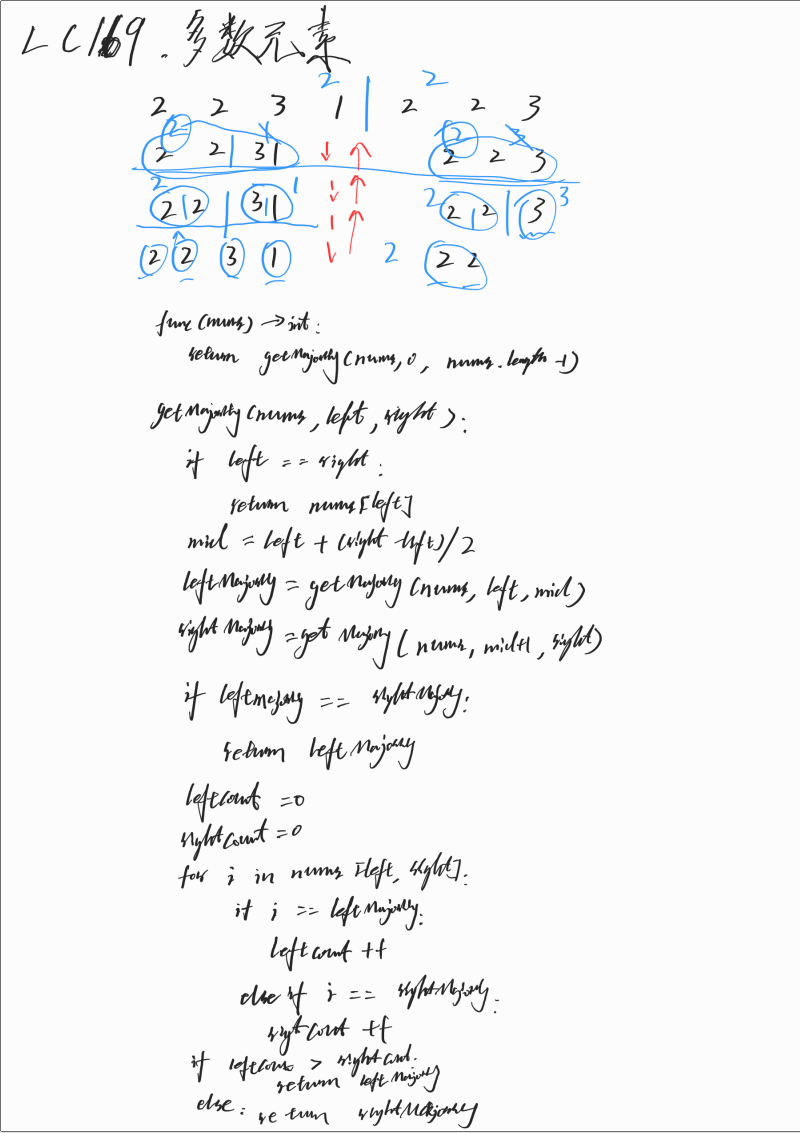 LC169.多数元素
2 2
2 2 3 1 | 2 2 3
2 2 3
2 2 | 3 1 ↓ ↑ 2 2 3
2 1 2 3
2 | 2 | 3 | 1 2 | 2 | 3
2 2 3 1 2 2 2
func(nums) → int:
return getMajority(nums, 0, nums.length -1)
getMajority(nums, left, right):
if left == right:
return nums[left]
mid = left + (right -left)/2
leftMajority = getMajority(nums, left, mid)
rightMajority = getMajority(nums, mid+1, right)
if leftmajority == rightMajority:
return leftMajority
leftcount =0
rightCount =0
for i in nums [left, right]:
if i == leftMajority:
leftcount ++
else if i == rightMajority:
rightCount ++
if leftcount > rightCount:
return leftMajority
else: return rightMajority